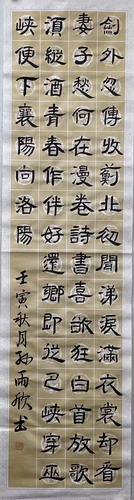 劍外忽傳收薊北初聞涕淚滿衣裳却看
妻子愁何在漫卷詩書喜欲狂白首放歌
須縱酒青春作伴好還鄉即從巴峽穿巫
峽便下襄陽向洛陽
壬寅秋月孙雨欣书